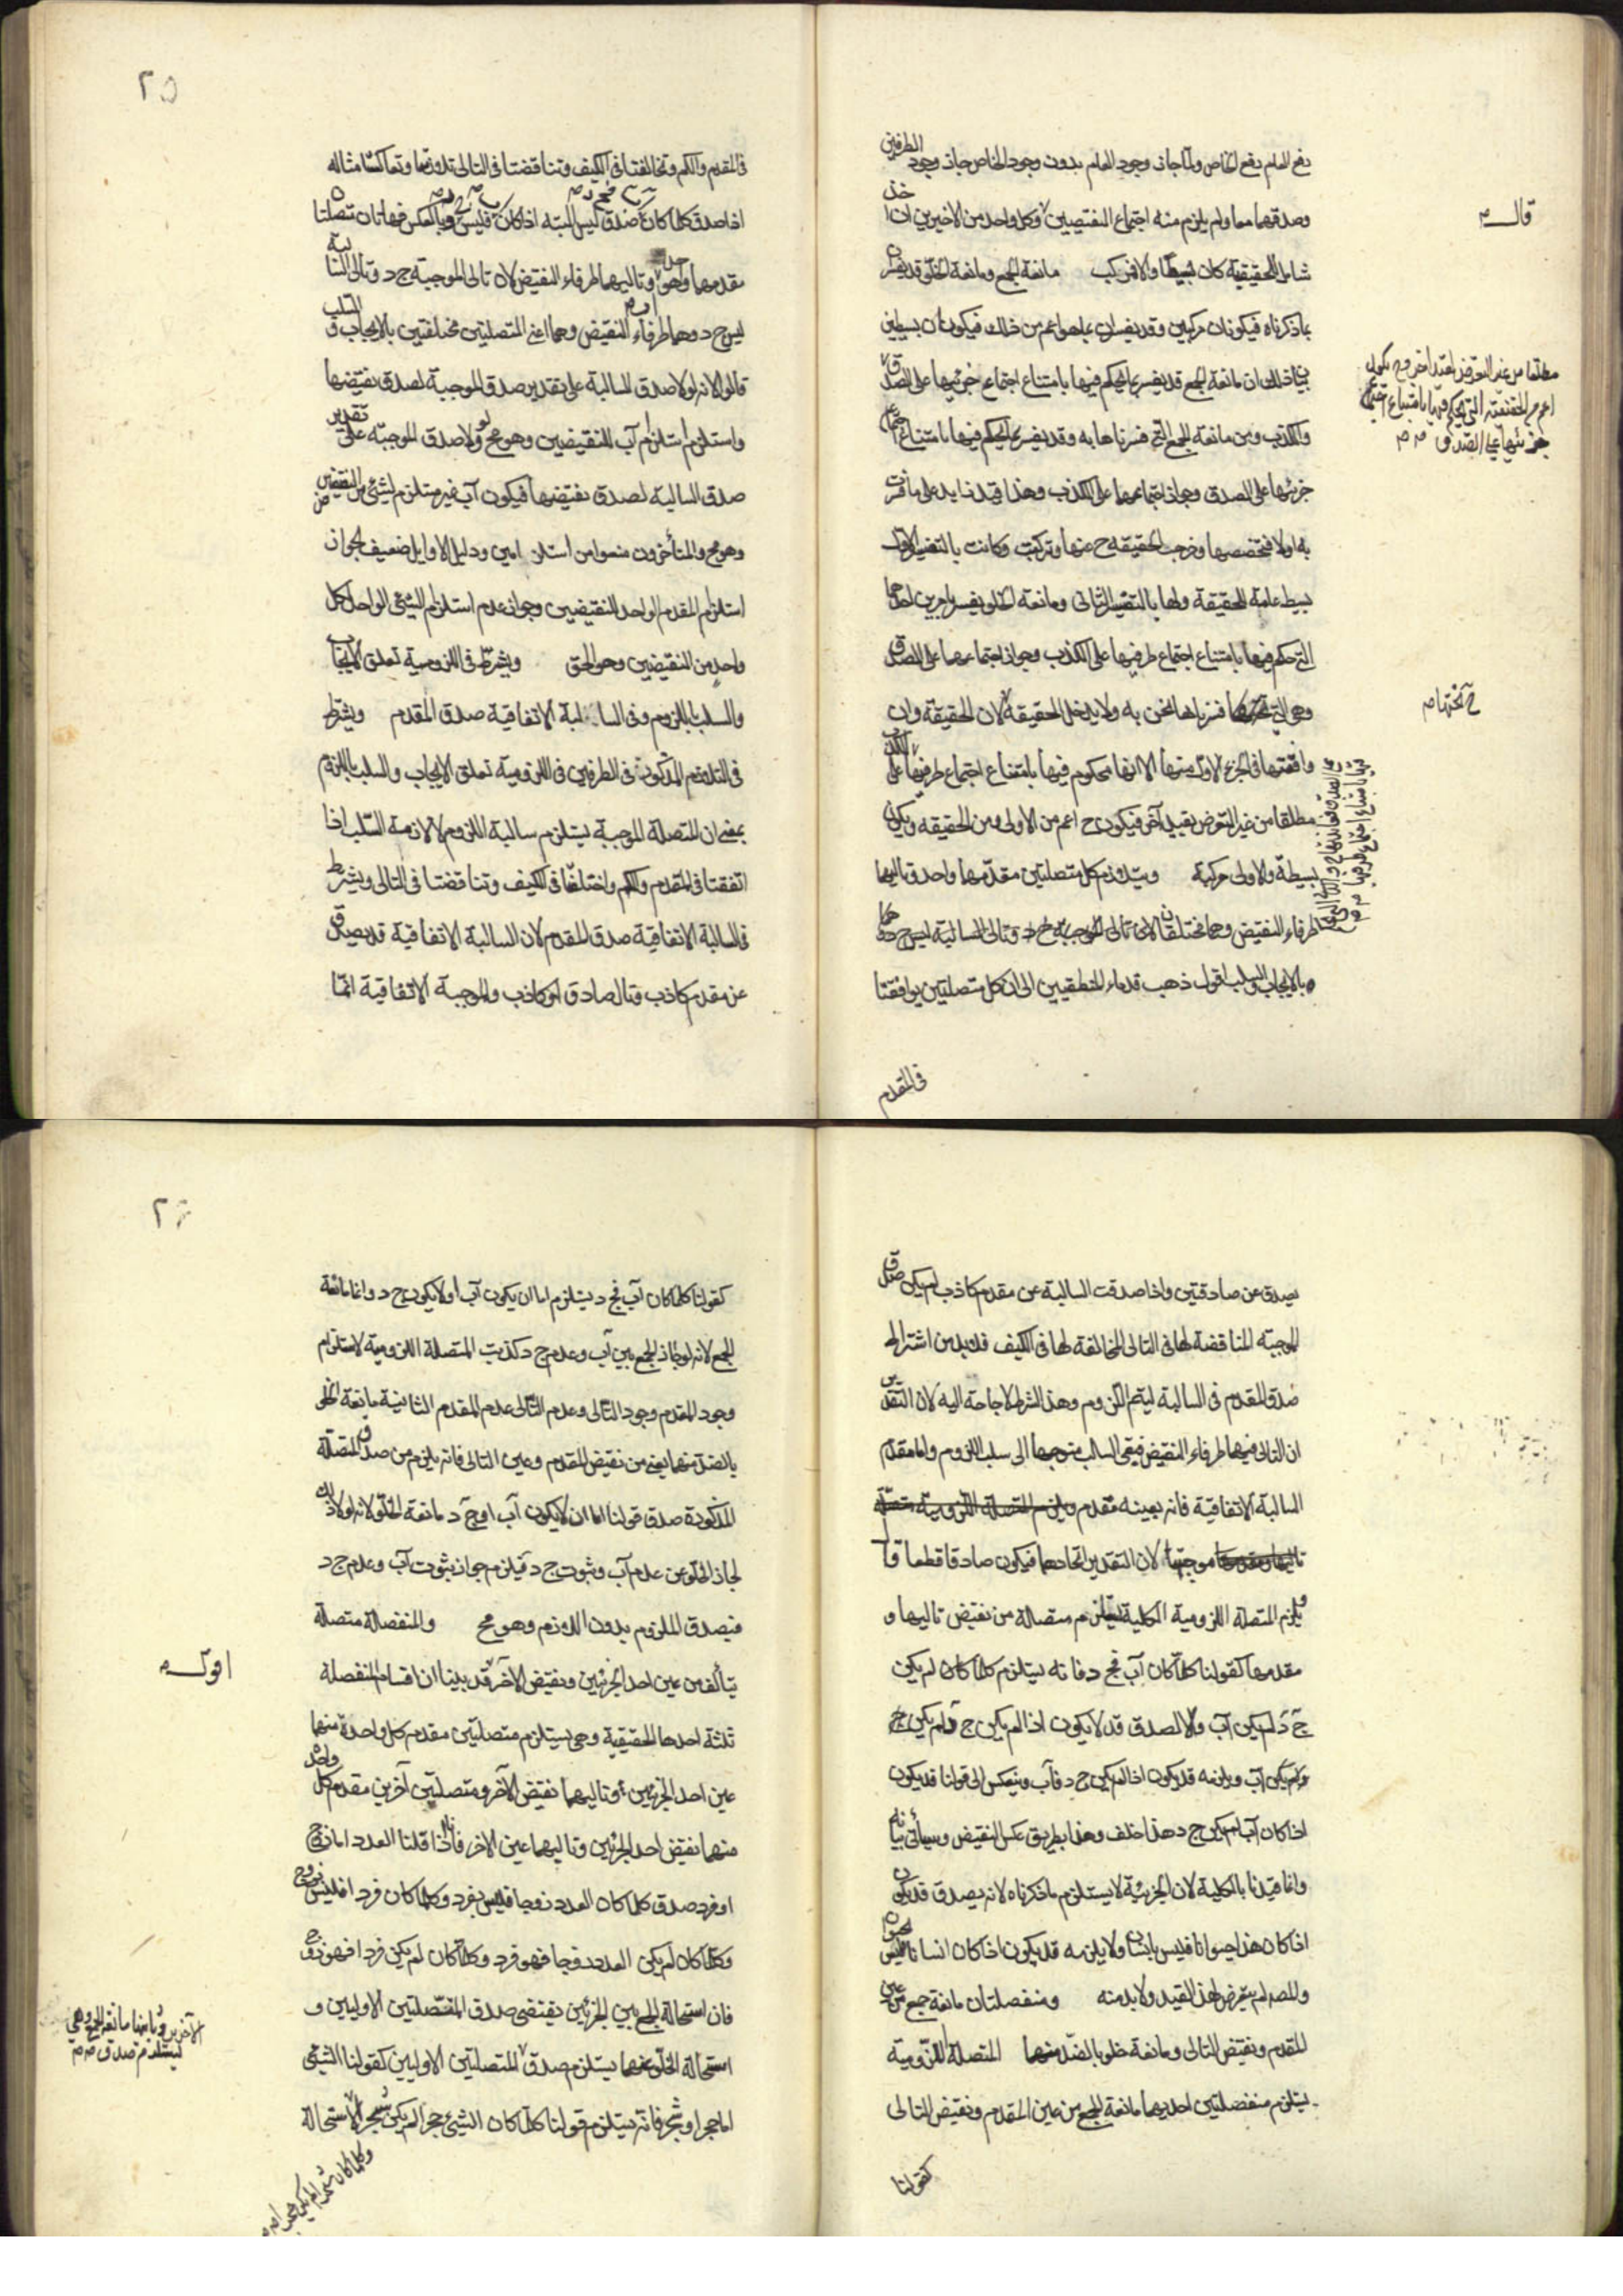 رفع العام رفع الخاص ولما جاز وجود العام بدون وجود الخاص جاز وجود الطرفين
وصدقهما معا ولم يلزم منه اجتماع النقيضين وكل واحد من الاخيرين ان
قال
شامل للحقيقية كان بسيطا والا فمركب مانعة الجمع ومانعة الخلو قد يفسران
بما ذكرناه فيكونان مركبين وقد يفسران بما هو اعم من ذلك فيكونان بسيطين
بيان ذلك ان مانعة الجمع قد يفسر بما يحكم فيها بامتناع اجتماع جزئيها على الصدق
مطلقا من غير التعرض لقيد اخر وح يكون
اعم من الحقيقية التي يحكم فيها بامتناع اجتماع
جزئيها على الصدق
والكذب ومن مانعة الجمع التي فسرناها به وقد يفسر بما يحكم فيها بامتناع اجتماع
جزئيها على الصدق وجواز اجتماعهما على الكذب وهذا قيد زايد على ما فسرت
به اولا فتخصصها وخرجت الحقيقه ح عنها وتركبت وكانت بالتفسير الاول
بسيطة عامة للحقيقة ولها بالتفسير الثانى ومانعة الخلو يفسر بامرين احدهما
التى حكم فيها بامتناع اجتماع طرفيها على الكذب وجواز اجتماعهما على الصدق
وهى التى فسرناها نحن به ولا يدخل الحقيقة لان الحقيقة وان
وافقتها فى الجزء الاول منها الا انها محكوم فيها بامتناع اجتماع طرفيها على
مطلقا من غير التعرض بقيد آخر فيكون ح اعم من الاولى ومن الحقيقه ويكون
بسيطة والاولى مركبة ويتلازم كل متصلتين مقدمهما واحد وتاليهما
طرفاء النقيض وهما مختلفتان لان تالى الموجبة ج د وتالى السالبة ليس ج د وهما
بالايجاب والسلب اقول ذهب قدماء المنطقيين الى ان كل متصلتين توافقتا
فى المقدم
٢٥
فى المقدم والكم وتخالفتا فى الكيف وتناقضتا فى التالى تلازمتا وتعاكستا مثاله
اذا صدق كلما كان صدق ليس البته اذا كان فليس وبالعكس فهاتان متصلتان
مقدمهما واحد وتاليهما طرفاء النقيض لان تالى الموجبة ج د وتالى السالبة
ليس ج د وهما طرفاء النقيض وهما اعنى المتصلتين مختلفتين بالايجاب والسلب
قالوا لانه لولا صدق السالبة على تقدير صدق الموجبة لصدق نقيضها
واستلزم استلزام آب للنقيضين وهو مح ولولا صدق الموجبه على تقدير
صدق السالبة لصدق نقيضها فيكون آب غير مستلزم لشئ من النقيضين
وهو مح والمتأخرون منعوا من استلزامين ودليل الاوايل ضعيف لجواز
استلزام المقدم الواحد النقيضين وجواز عدم استلزام الشئ الواحد لكل
واحد من النقيضين وهو الحق ويشترط فى اللزومية تعلق الايجاب
والسلب باللزوم وفى السالبة الاتفاقية صدق المقدم ويشترط
فى التلازم المذكور فى الطرفين فى اللزومية تعلق الايجاب والسلب باللزوم
بمعنى ان المتصلة الموجبة يستلزم سالبة اللزوم لا لازمة السلب اذا
اتفقتا فى المقدم والكم واختلفا فى الكيف وتناقضتا فى التالى ويشترط
فى السالبة الاتفاقية صدق المقدم لان السالبة الاتفاقية قد يصدق
عن مقدم كاذب وتال صادق او كاذب والموجبة الاتفاقية انما
يصدق عن صادقتين واذا صدقت السالبة عن مقدم كاذب لم يكن صدق
الموجبه المناقضة لها فى التالى المخالفة لها فى الكيف فلابد من اشتراط
صدق المقدم فى السالبة ليتم اللزوم وهذا الشرط لا حاجة اليه لان التقدير
ان التالى فيهما طرفاء النقيض فيبقى السالب متوجها الى سلب اللزوم واما مقدم
السالبة الاتفاقية فانه بعينه مقدم
موجبتها لان التقدير اتحادهما فيكون صادقا قطعا قا
ويلزم المتصلة اللزومية الكلية متصلة من نقيض تاليها و
مقدمها كقولنا كلما كان آب فج د فانه يستلزم كلما كان لم يكن
ج د لم يكن آب والا لصدق قد لا يكون اذا لم يكن ج د لم يكن
ولم يكن آب ويلزمه قد يكون اذا لم يكن ج د فآب وينعكس الى قولنا قد يكون
اذا كان آب لم يكن ج د هذا خلف وهذا بطريق عكس النقيض وسيأتى بيانه
وانما قيدنا بالكلية لان الجزئية لا يستلزم ما ذكرناه لانه يصدق قد يكون
اذا كان هذا حيوانا فليس بانسان ولا يلزمه قد يكون اذا كان انسانا فليس بحيوان
والمصه لم يتعرض لهذا القيد ولا بد منه ومنفصلتان مانعة جمع من عين
المقدم ونقيض التالى ومانعة خلو بالضد المتصلة اللزومية
يستلزم منفصلتين احديهما مانعة الجمع من عين المقدم ونقيض التالى
كقولنا
٢٦
كقولنا كلما كان آب فج د يستلزم اما ان يكون آب او لا يكون ج د وانما مانعة
الجمع لانه لو جاز الجمع بين آب وعدم ج د كذبت المتصلة اللزومية لاستلزام
وجود المقدم وجود التالى وعدم التالى عدم المقدم الثانية مانعة الخلو
بالضد منهما يعنى من نقيض المقدم وعين التالى فانه يلزم من صدق المتصلة
المذكورة صدق قولنا اما ان لا يكون آب او ج د مانعة الخلو لانه لولا ذلك
لجاز الخلو عن عدم آب وثبوت ج د فيلزم جواز ثبوت آب وعدم ج د
فيصدق الملزوم بدون اللازم وهو مح والمنفصلة متصلة
يتألف من عين احد الجزئين ونقيض الآخر قد بينا ان اقسام المنفصلة
اقول
ثلثة احدها الحقيقية وهى يستلزم متصلتين مقدم كل واحدة منهما
عين احد الجزئين وتاليهما نقيض الآخر ومتصلتين آخرين مقدم كل واحد
منهما نقيض احد الجزئين وتاليهما عين الآخر فانا اذا قلنا العدد اما زوج
او فرد صدق كلما كان العدد زوجا فليس بفرد وكلما كان فردا فليس بزوج
وكلما كان لم يكن العدد زوجا فهو فرد وكلما كان لم يكن فردا فهو زوج
فان استحالة الجمع بين الجزئين يقتضى صدق المتصلتين الاوليين و
استحالة الخلو عنهما يستلزم صدق المتصلتين الاوليين كقولنا الشئ
الآخرين وثانيها مانعة الجمع وهى
يستلزم صدق
اما حجر او شجر فانه يستلزم قولنا كلما كان الشئ حجرا لم يكن شجرا لاستحالة
وكلما كان شجرا لم يكن حجرا